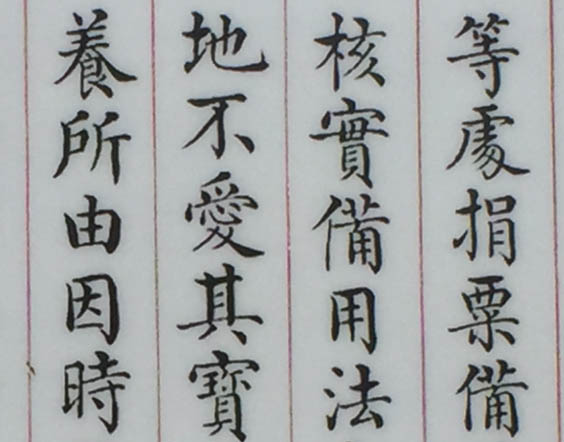 等處捐票備
核實備用法
地不愛其寶
養所由因時